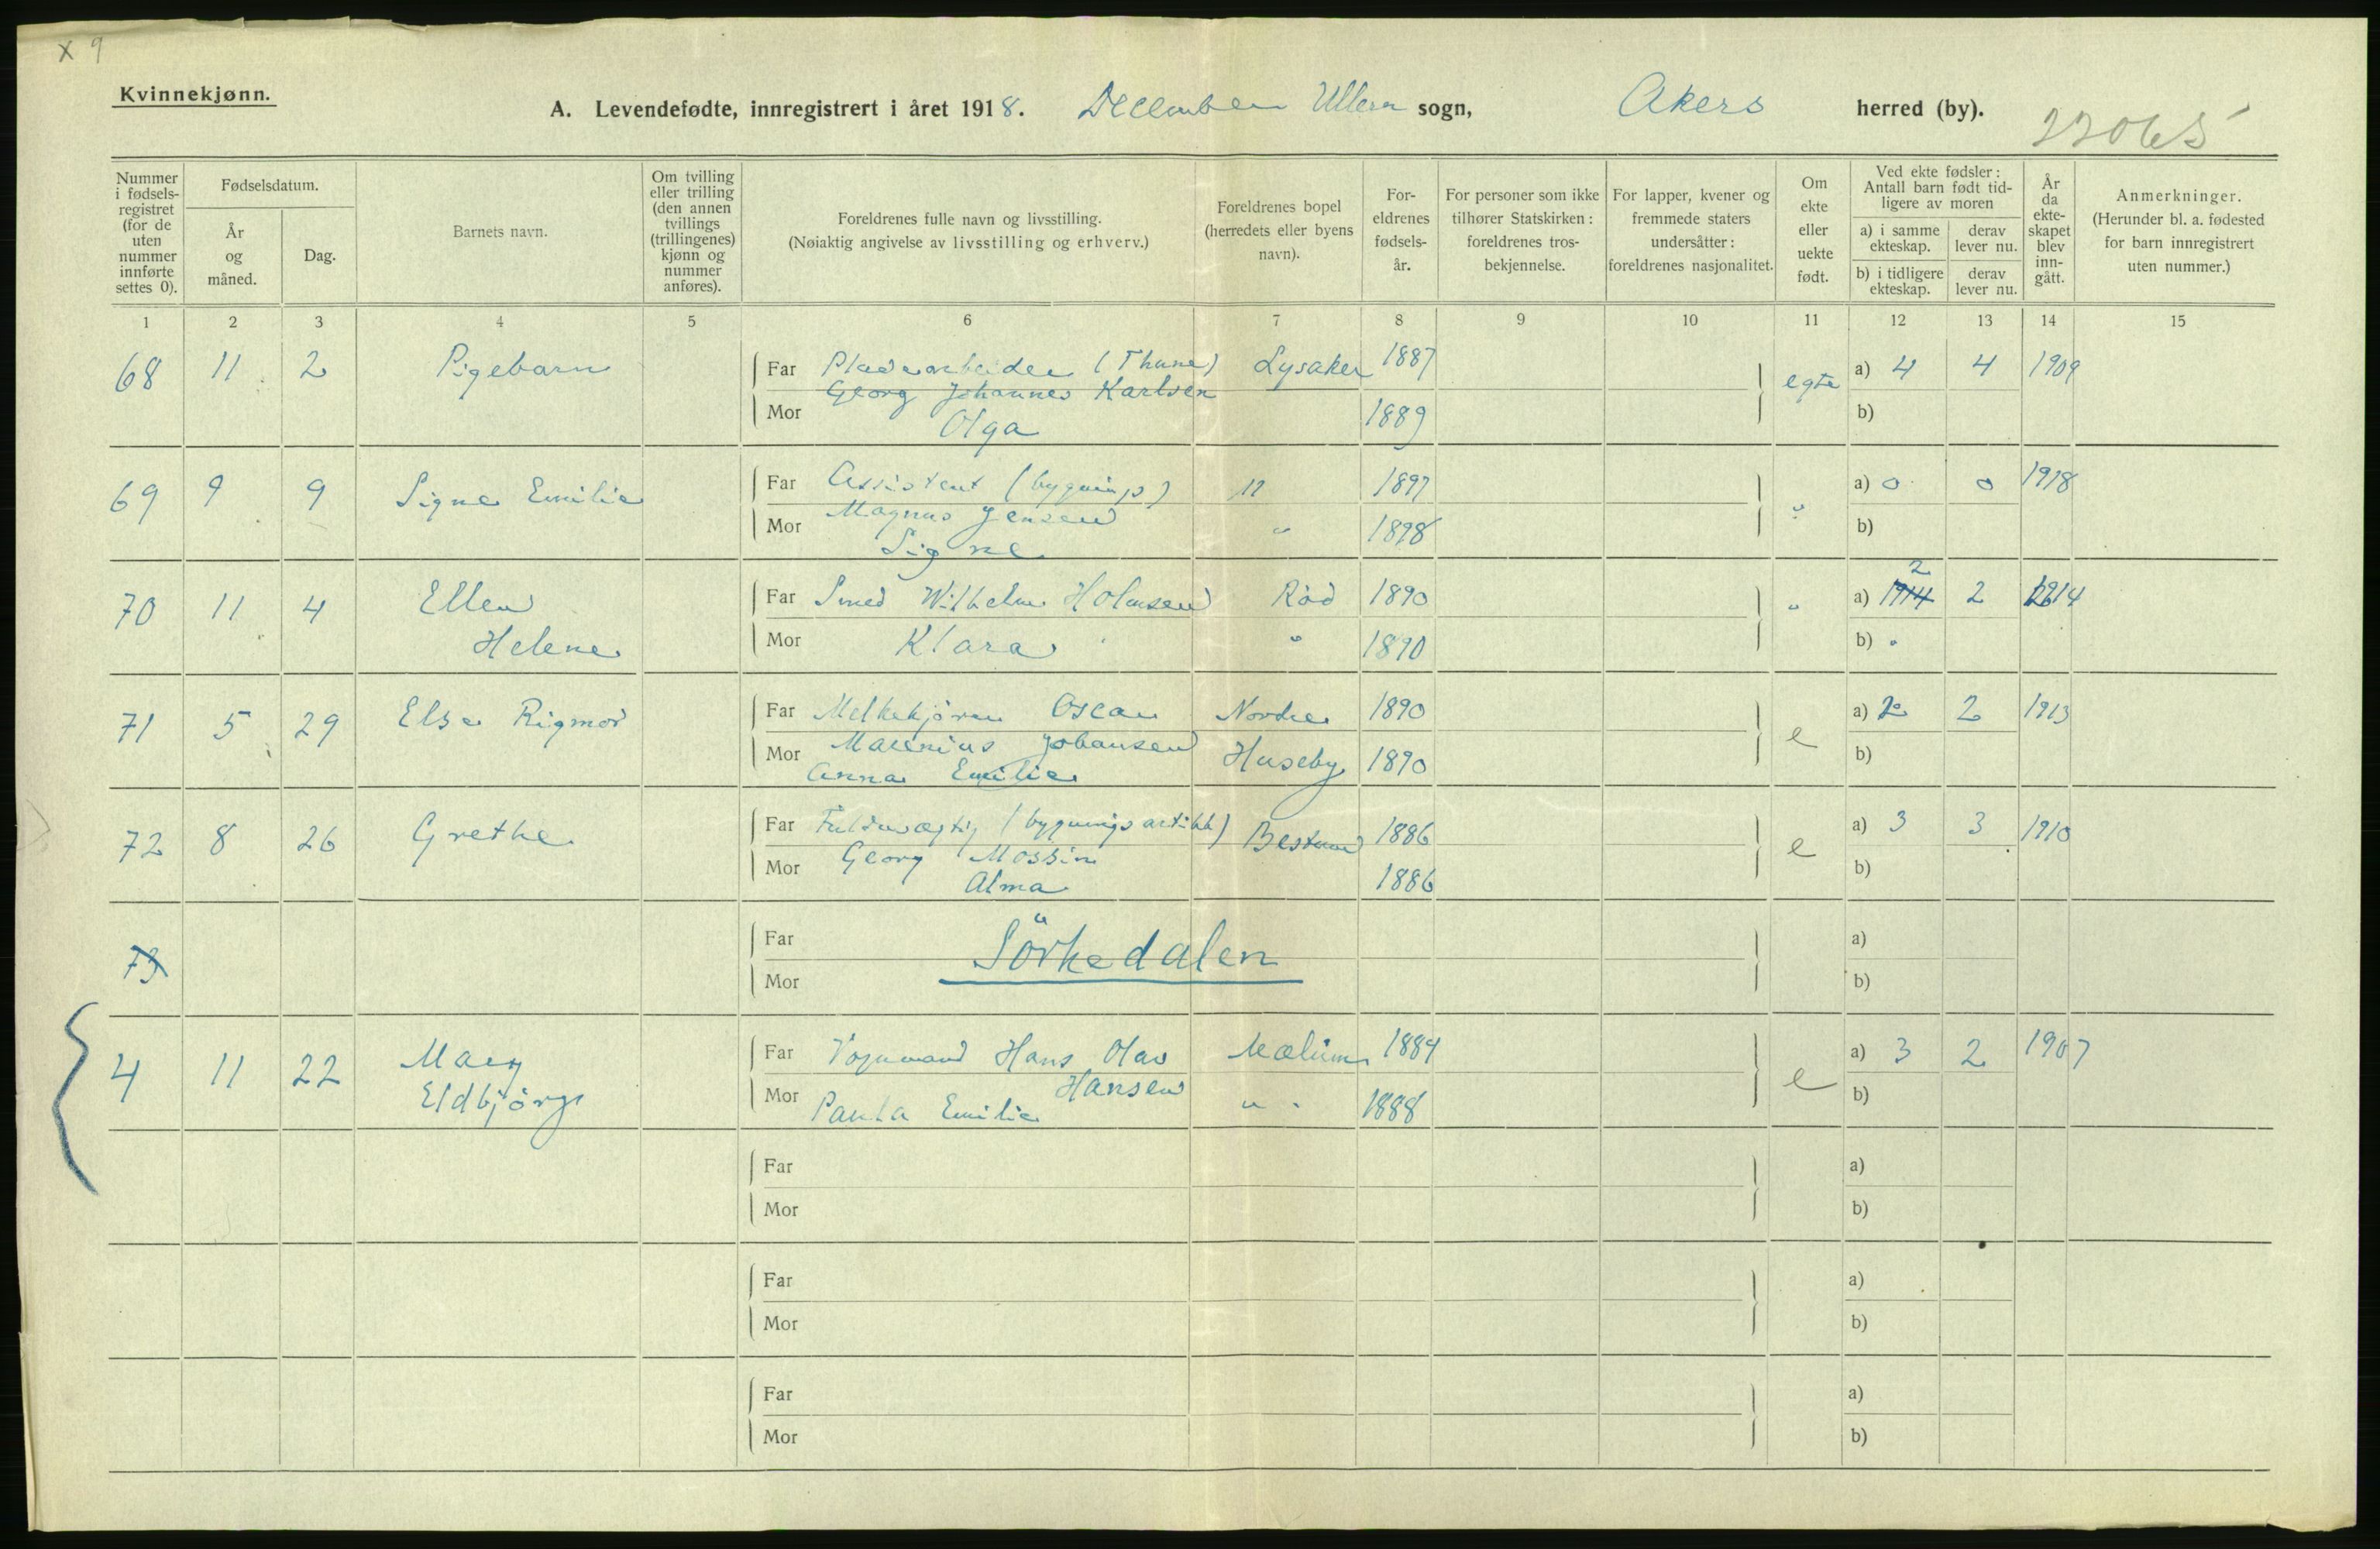 x 9
Kvinnekjønn.
A. Levendefødte, innregistrert i året 1918. December Ullern sogn, Akers herred (by).
22065
Nummer i fødsels-registret (for de uten nummer innførte settes 0).
Fødselsdatum.
År og måned.
Dag.
Barnets navn.
Om tvilling eller trilling (den annen tvillings (trillingenes) kjønn og nummer anføres).
Foreldrenes fulle navn og livsstilling.
(Nøiaktig angivelse av livsstilling og erhverv.)
Foreldrenes bopel (herredets eller byens navn).
For-eldrenes fødsels-år.
For personer som ikke tilhører Statskirken: foreldrenes tros-bekjennelse.
For lapper, kvener og fremmede staters undersåtter: foreldrenes nasjonalitet.
Om ekte eller uekte født.
Ved ekte fødsler: Antall barn født tid-ligere av moren
a) i samme ekteskap.
derav lever nu.
b) i tidligere ekteskap.
derav lever nu.
År da ekte-skapet blev inn-gått.
Anmerkninger.
(Herunder bl. a. fødested for barn innregistrert uten nummer.)
1 2 3 4 5 6 7 8 9 10 11 12 13 14 15
68 11 2 Pigebarn Far Pladearbeider (Thune) Lysaker 1887 egte a) 4 4 1909
Georg Johannes Karlsen
Mor Olga 1889 b)
69 9 9 Signe Emilie Far Assistent (bygnings) " 1897 " a) 0 0 1918
Magnus Jensen
Mor Signe " 1898 b)
70 11 4 Ellen Far Smed Wilhelm Holmsen Röd 1890 " a) 1914 2 2 1914
Helene Mor Klara " 1890 b) "
71 5 29 Else Rigmor Far Melkekjörer Oscar Nordre 1890 e a) 2 2 1913
Marenius Johansen
Mor Anna Emilie Huseby 1890 b)
72 8 26 Grethe Far Fuldmægtig (bygningsartikk) Bestum 1886 e a) 3 3 1910
Georg Mossin
Mor Alma 1886 b)
73 Far Sörkedalen a)
Mor b)
4 11 22 Mary Far Vognmand Hans Olav Mælum 1884 e a) 3 2 1907
Hansen
Eldbjörg Mor Paula Emilie " " 1888 b)
Far a)
Mor b)
Far a)
Mor b)
Far a)
Mor b)